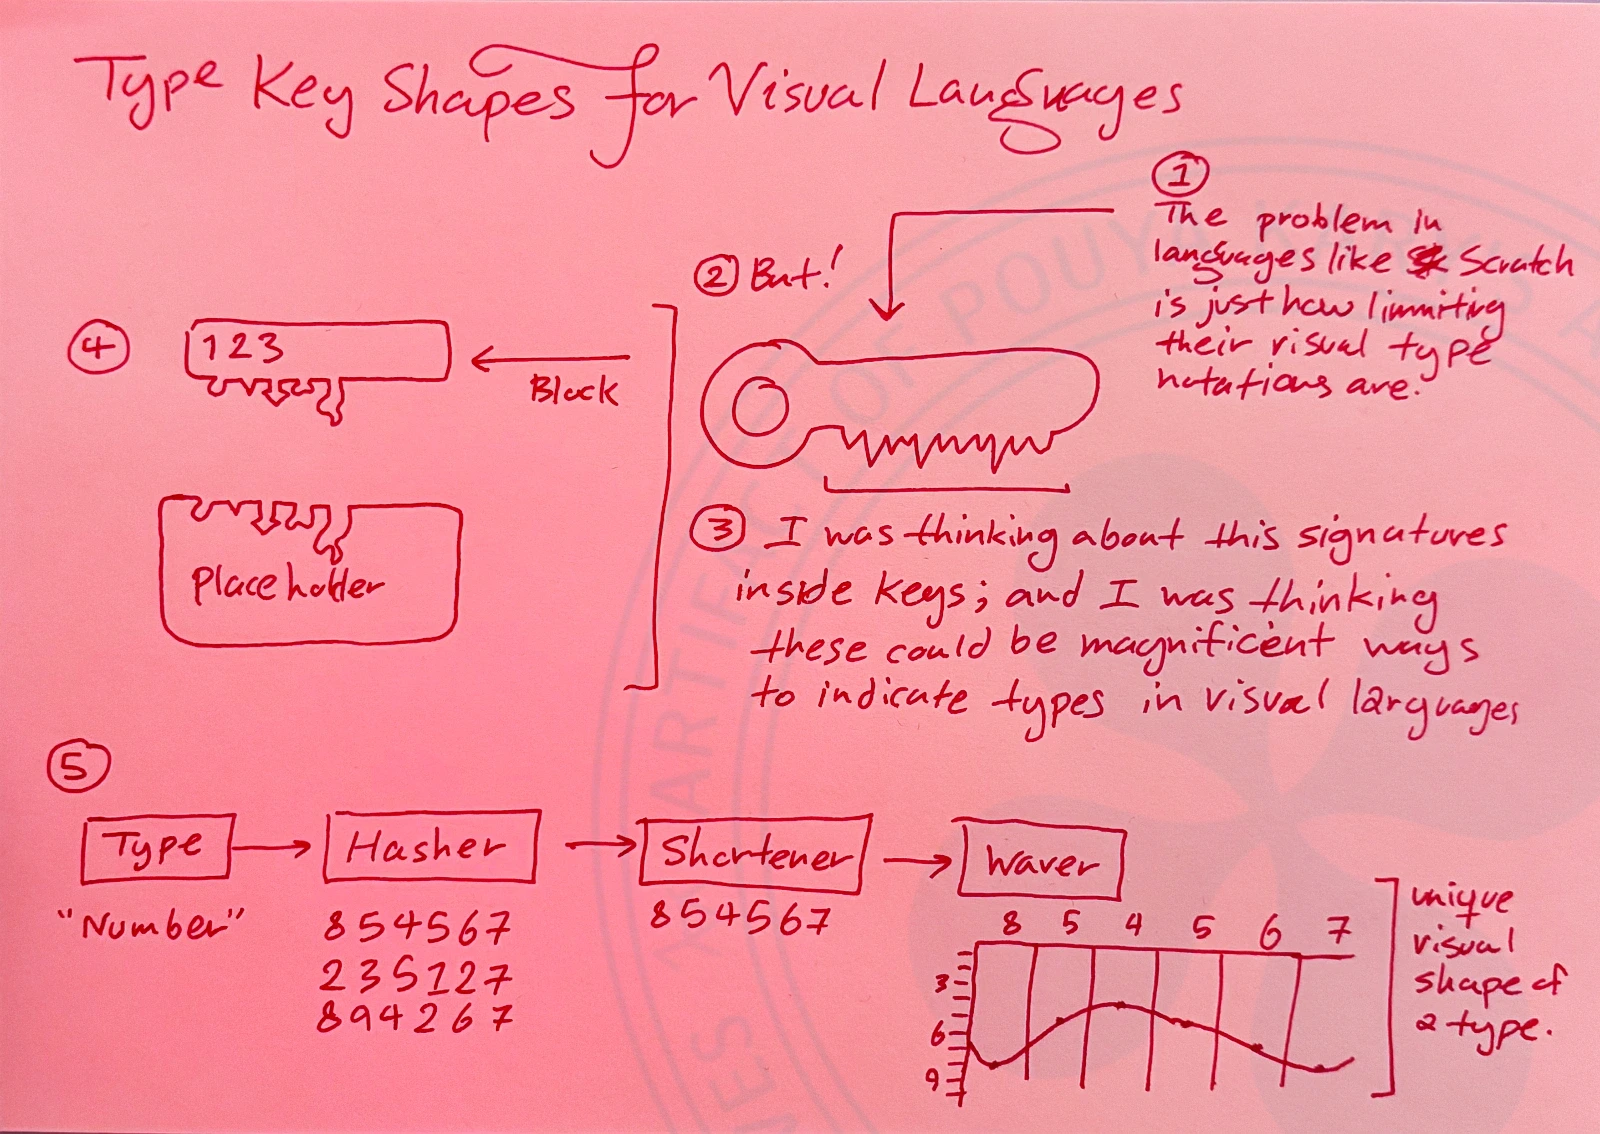 Type Key Shapes for Visual Languages
1
The problem in
languages like Scratch
is just how limmiting
their visual type
notations are.
2 But!
3 I was thinking about this signatures
inside keys; and I was thinking
these could be magnificent ways
to indicate types in visual languages
4
123
Block
Placeholder
5
Type
Hasher
Shortener
Waver
"Number"
854567
235127
894267
854567
8 5 4 5 6 7
3
6
9
unique
visual
shape of
a type.
OF POUYA
ARTIFAC